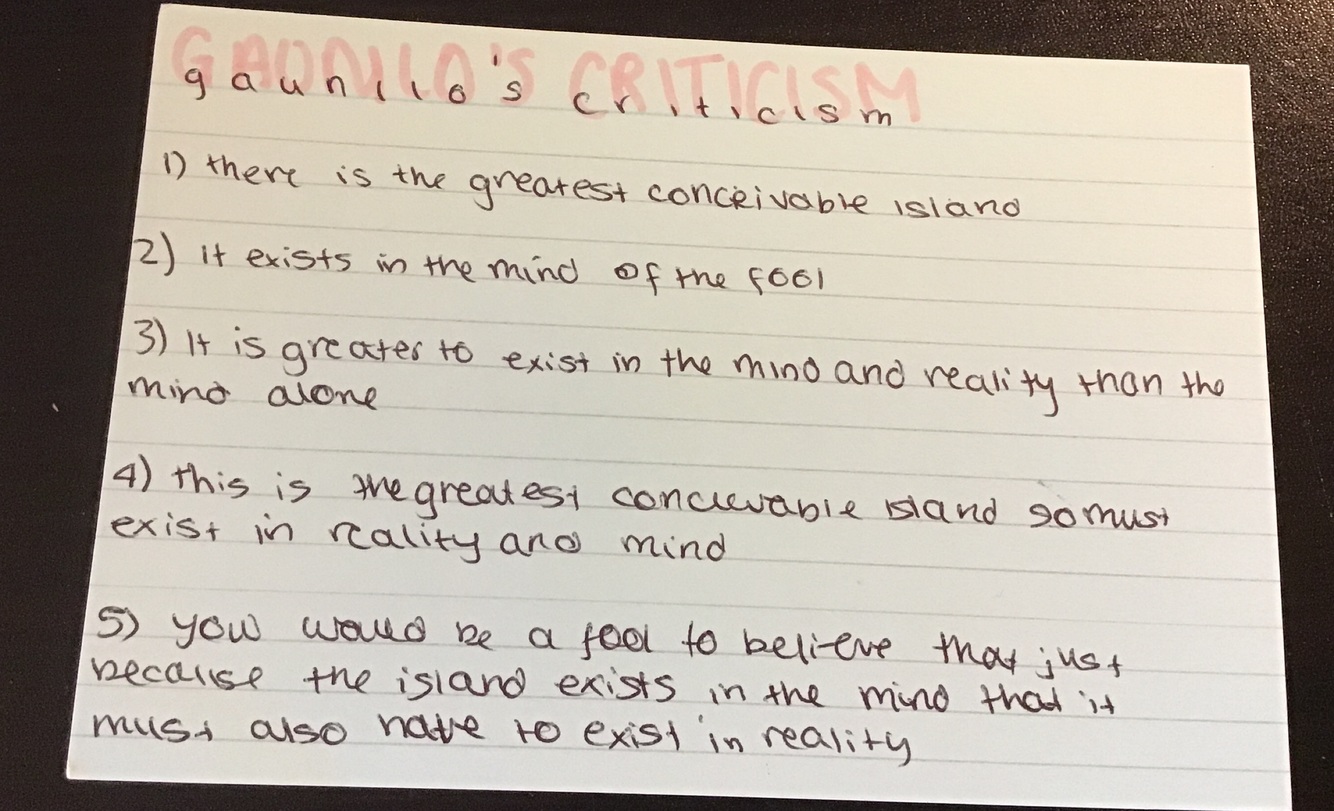 GAUNILO'S CRITICISM
gaunilo's criticism
1) there is the greatest conceivable island
2) It exists in the mind of the fool
3) It is greater to exist in the mind and reality than the
mind alone
4) this is the greatest concievable island so must
exist in reality and mind
5) you would be a fool to believe that just
because the island exists in the mind that it
must also have to exist in reality